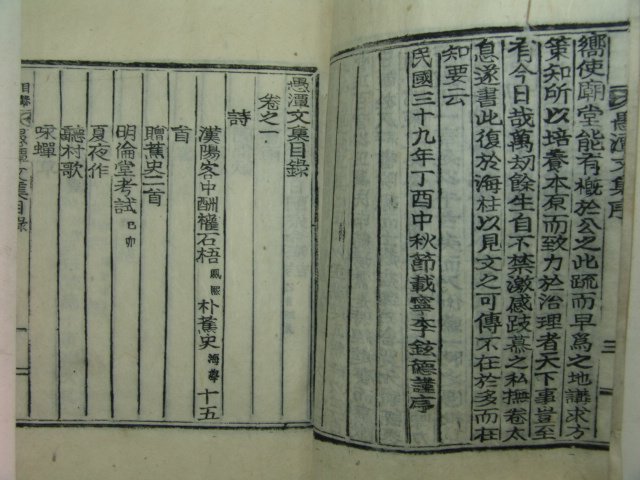 愚潭文集序
三
嚮使廟堂能有槪於公之此疏而早爲之地講求方
策知所以培養本原而致力於治理者天下事豈至
有今日哉萬刼餘生自不禁激感跂慕之私撫卷太
息遂書此復於海柱以見文之可傳不在於多而在
知要云
民國三十九年丁酉中秋節載寧李鉉德謹序
愚潭文集目錄
卷之一
詩
漢陽客中酬權石梧鳳熙朴蕉史海 十五
首
贈蕉史二首
明倫堂考試己卯
夏夜作
聽村歌
咏蟬
愚潭文集目錄